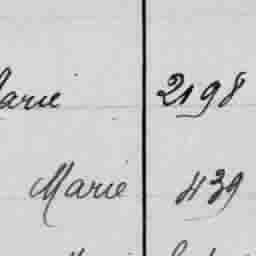 Marie 2198
Marie 439